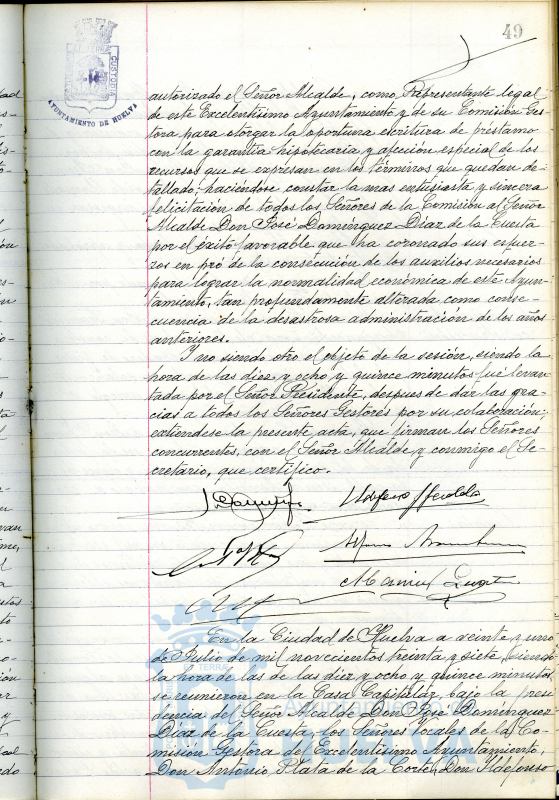 49
CUSTODIA
AYUNTAMIENTO DE HUELVA
autorizado el Señor Alcalde, como Representante legal
de este Excelentísimo Ayuntamiento y de su Comisión Ges-
tora para otorgar la oportuna escritura de préstamo
con la garantía hipotecaria y afección especial de los
recursos que se expresan en los términos que quedan de-
tallado; haciéndose constar la mas entusiasta y sincera
felicitación de todos los Señores de la Comisión al Señor
Alcalde Don José Domínguez Díaz de la Cuesta
por el éxito favorable que ha coronado sus esfuer-
zos en pró de la consecución de los auxilios necesarios
para lograr la normalidad económica de este Ayun-
tamiento, tan profundamente alterada como conse-
cuencia de la desastrosa administración de los años
anteriores.
Y no siendo otro el objeto de la sesión, siendo la
hora de las diez y ocho y quince minutos fué levan-
tada por el Señor Presidente, despues de dar las gra-
cias a todos los Señores Gestores por su colaboración;
extiéndese la presente acta, que firman los Señores
concurrentes, con el Señor Alcalde y conmigo el Se-
cretario, que certifico.
En la Ciudad de Huelva a veinte y uno
de Julio de mil novecientos treinta y siete, siendo
la hora de las de las diez y ocho y quince minutos
se reunieron en la Casa Capitular, bajo la presi
dencia del Señor Alcalde Don José Domínguez
Díaz de la Cuesta, los Señores locales de la Co-
misión Gestora del Excelentísimo Ayuntamiento,
Don Antonio Plata de la Corte, Don Ildefonso